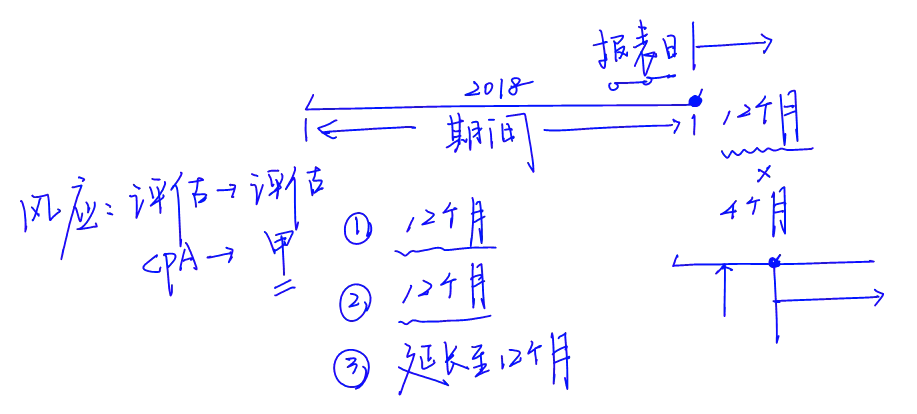 报表日
2018
期间
12个月
×
4个月
风应：评估→评估
CPA→甲
① 12个月
② 12个月
③ 延长至12个月